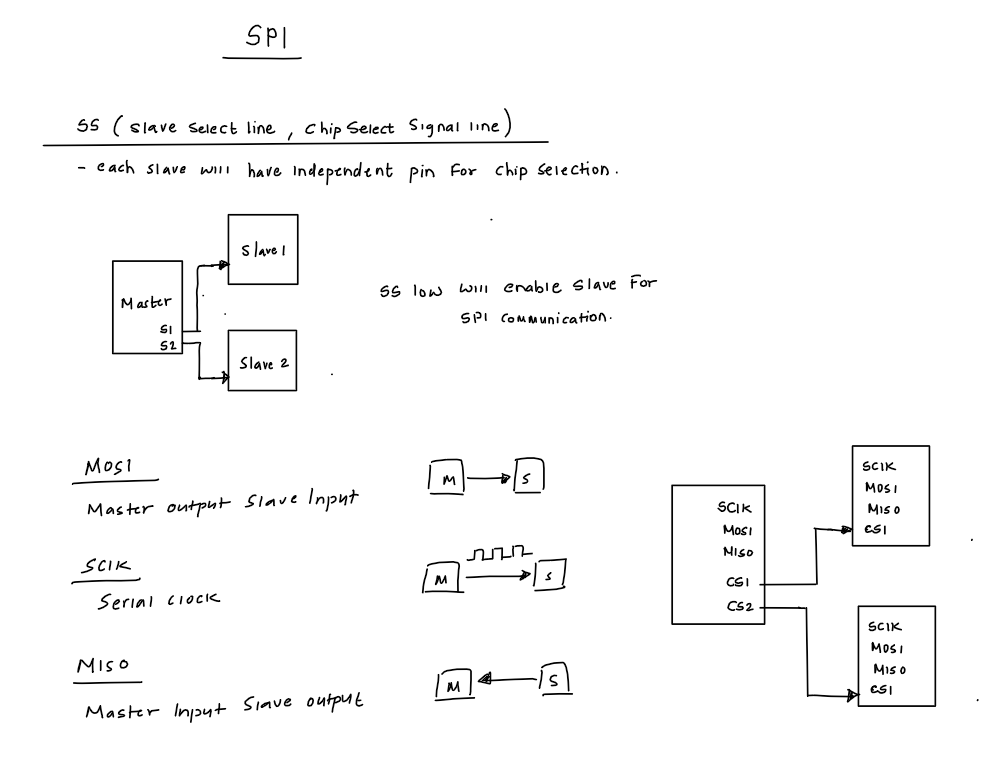 SPI
SS (Slave Select line, Chip Select Signal line)
- each slave will have independent pin for chip selection.
Slave 1
Master
S1
S2
Slave 2
SS low will enable Slave for
SPI communication.
MOSI
M
S
Master output Slave Input
SClK
M
S
Serial clock
MISO
M
S
Master Input Slave output
SClK
MOSI
MISO
CS1
CS2
SClK
MOSI
MISO
CS1
SClK
MOSI
MISO
CS1